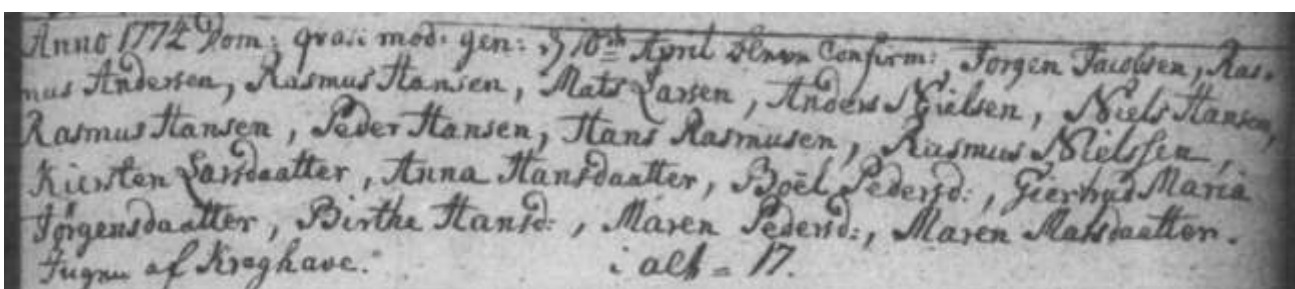 Anno 1774 Dom: qvasi mod: gen: d 10de April bleve Confirm: Jørgen Jacobsen, Ras-
mus Andersen, Rasmus Hansen, Mats Larsen, Anders Nielsen, Niels Hansen,
Rasmus Hansen, Peder Hansen, Hans Rasmusen, Rasmus Nielssen,
Kiersten Larsdaatter, Anna Hansdaatter, Boël Pedersd:, Giertrud Maria
Jørgensdaatter, Birthe Hansd:, Maren Pedersd:, Maren Matsdaatter.
af Kraghave. i alt = 17.